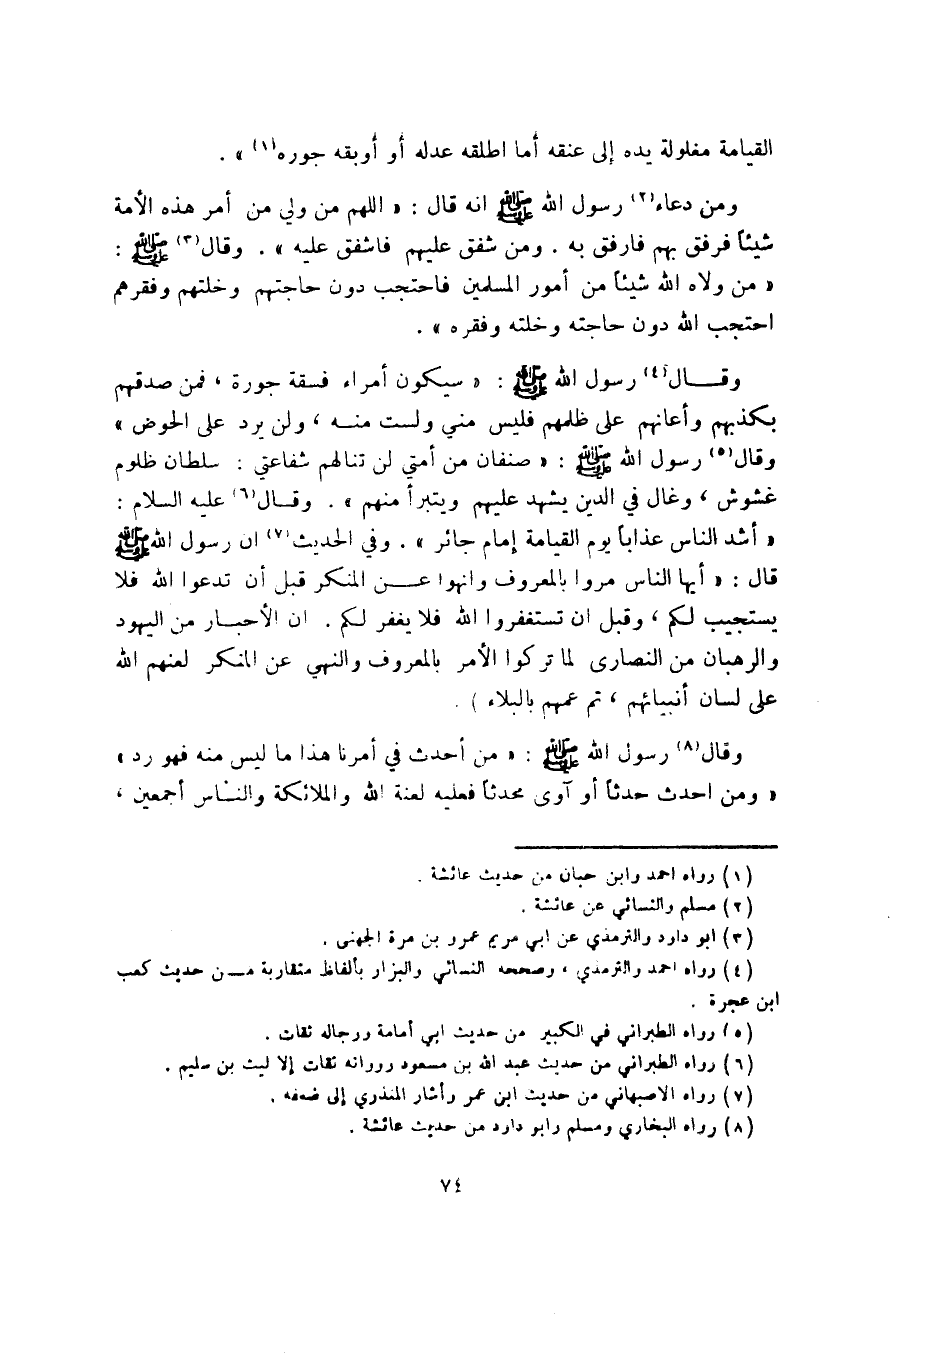 القيامة مغلولة يده إلى عنقه أما اطلقه عدله أو أوبقه جوره(١) » .
ومن دعاء(٢) رسول الله ﷺ انه قال : « اللهم من ولي من أمر هذه الأمة
شيئاً فرفق بهم فارفق به . ومن شفق عليهم فاشفق عليه » . وقال(٣) ﷺ :
« من ولاه الله شيئاً من أمور المسلمين فاحتجب دون حاجتهم وخلتهم وفقرهم
احتجب الله دون حاجته وخلته وفقره » .
وقـــال(٤) رسول الله ﷺ : « سيكون أمراء فسقة جورة ، فمن صدقهم
بكذبهم وأعانهم على ظلمهم فليس مني ولست منــه ، ولن يرد على الحوض »
وقال(٥) رسول الله ﷺ : « صنفان من أمتي لن تنالهم شفاعتي : سلطان ظلوم
غشوش ، وغال في الدين يشهد عليهم ويتبرأ منهم » . وقــال(٦) عليه السلام :
« أشد الناس عذاباً يوم القيامة إمام جائر » . وفي الحديث(٧) ان رسول الله ﷺ
قال : « أيها الناس مروا بالمعروف وانهوا عـــن المنكر قبل أن تدعوا الله فلا
يستجيب لكم ، وقبل ان تستغفروا الله فلا يغفر لكم . ان الأحبــار من اليهود
والرهبان من النصارى لما تركوا الأمر بالمعروف والنهي عن المنكر لعنهم الله
على لسان أنبيائهم ، ثم عمهم بالبلاء ) .
وقال(٨) رسول الله ﷺ : « من أحدث في أمرنا هذا ما ليس منه فهو رد »
« ومن احدث حدثاً أو آوى محدثاً فعليه لعنة الله والملائكة والنـاس أجمعين ،
(١) رواه احمد وابن حبان من حديث عائشة .
(٢) مسلم والنسائي عن عائشة .
(٣) ابو داود والترمذي عن ابي مريم عمرو بن مرة الجهنى .
(٤) رواه احمد والترمذي ، وصححه النسائي والبزار بألفاظ متقاربة مــن حديث كعب
ابن عجرة .
(٥) رواه الطبراني في الكبير من حديث ابي أمامة ورجاله ثقات .
(٦) رواه الطبراني من حديث عبد الله بن مسعود ورواته ثقات إلا ليث بن سليم .
(٧) رواه الاصبهاني من حديث ابن عمر وأشار المنذري إلى ضعفه .
(٨) رواه البخاري ومسلم وابو داود من حديث عائشة .
٧٤